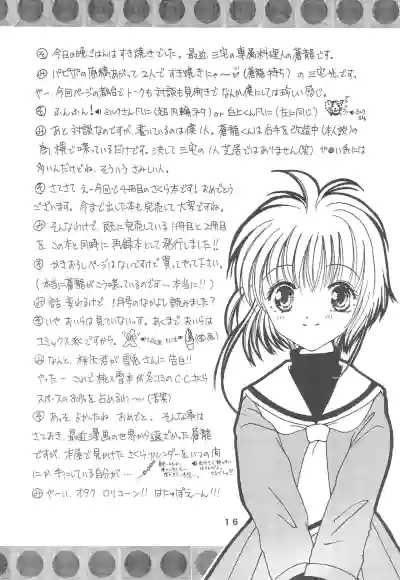 今日の晩ごはんはすき焼きでした。最近 三宅の専属料理人の蒼龍です。
パピヴァの原稿あがって2人ですき焼きにゃ〜(蒼龍持ち)の三宅です。
やー 今回ページの都合でトークも対談も見開きでなんか僕にしては珍しい感じ。
ふんふん!
あと 対談なのですが、書いているのは僕1人。蒼龍くんは右手を改造中(本人談)の
為、横で喋っているだけです。決して三宅の1人芝居ではありません(笑)
多いんだけどね、そういう さみしい人。
さてさて えー今回で4冊目のさくら本です!おめでとう
ございます。今まで出した本も完売して大変ですね。
そんなわけで、既に完売している1冊目と2冊目
を この本と同時に再録本として発行しました!!
かきおろしページはないですけど買ってやって下さい。
(本当に蒼龍がこう喋っているのです…本当に!!)
話 変わるけど 1月号のなかよし読みました?
いや おいらは見ていないっす。あくまでおいらは
コミックス派ですから。
なんと、桃矢君が雪兎さんに告白!!
やったー これで桃×雪本が冬コミのC.C.さくら
スペースのおよそを占めるわ〜(苦笑)
あっそ、よかったね おめでと。 そんな事は
さておき、最近漫画の世界から遠ざかった蒼龍
ですが、本屋で見かけた さくらカレンダーをいつの間
にか手にしている自分が…
やーい、オタク ロリコーン!! はにゃぽえーん!!!
16